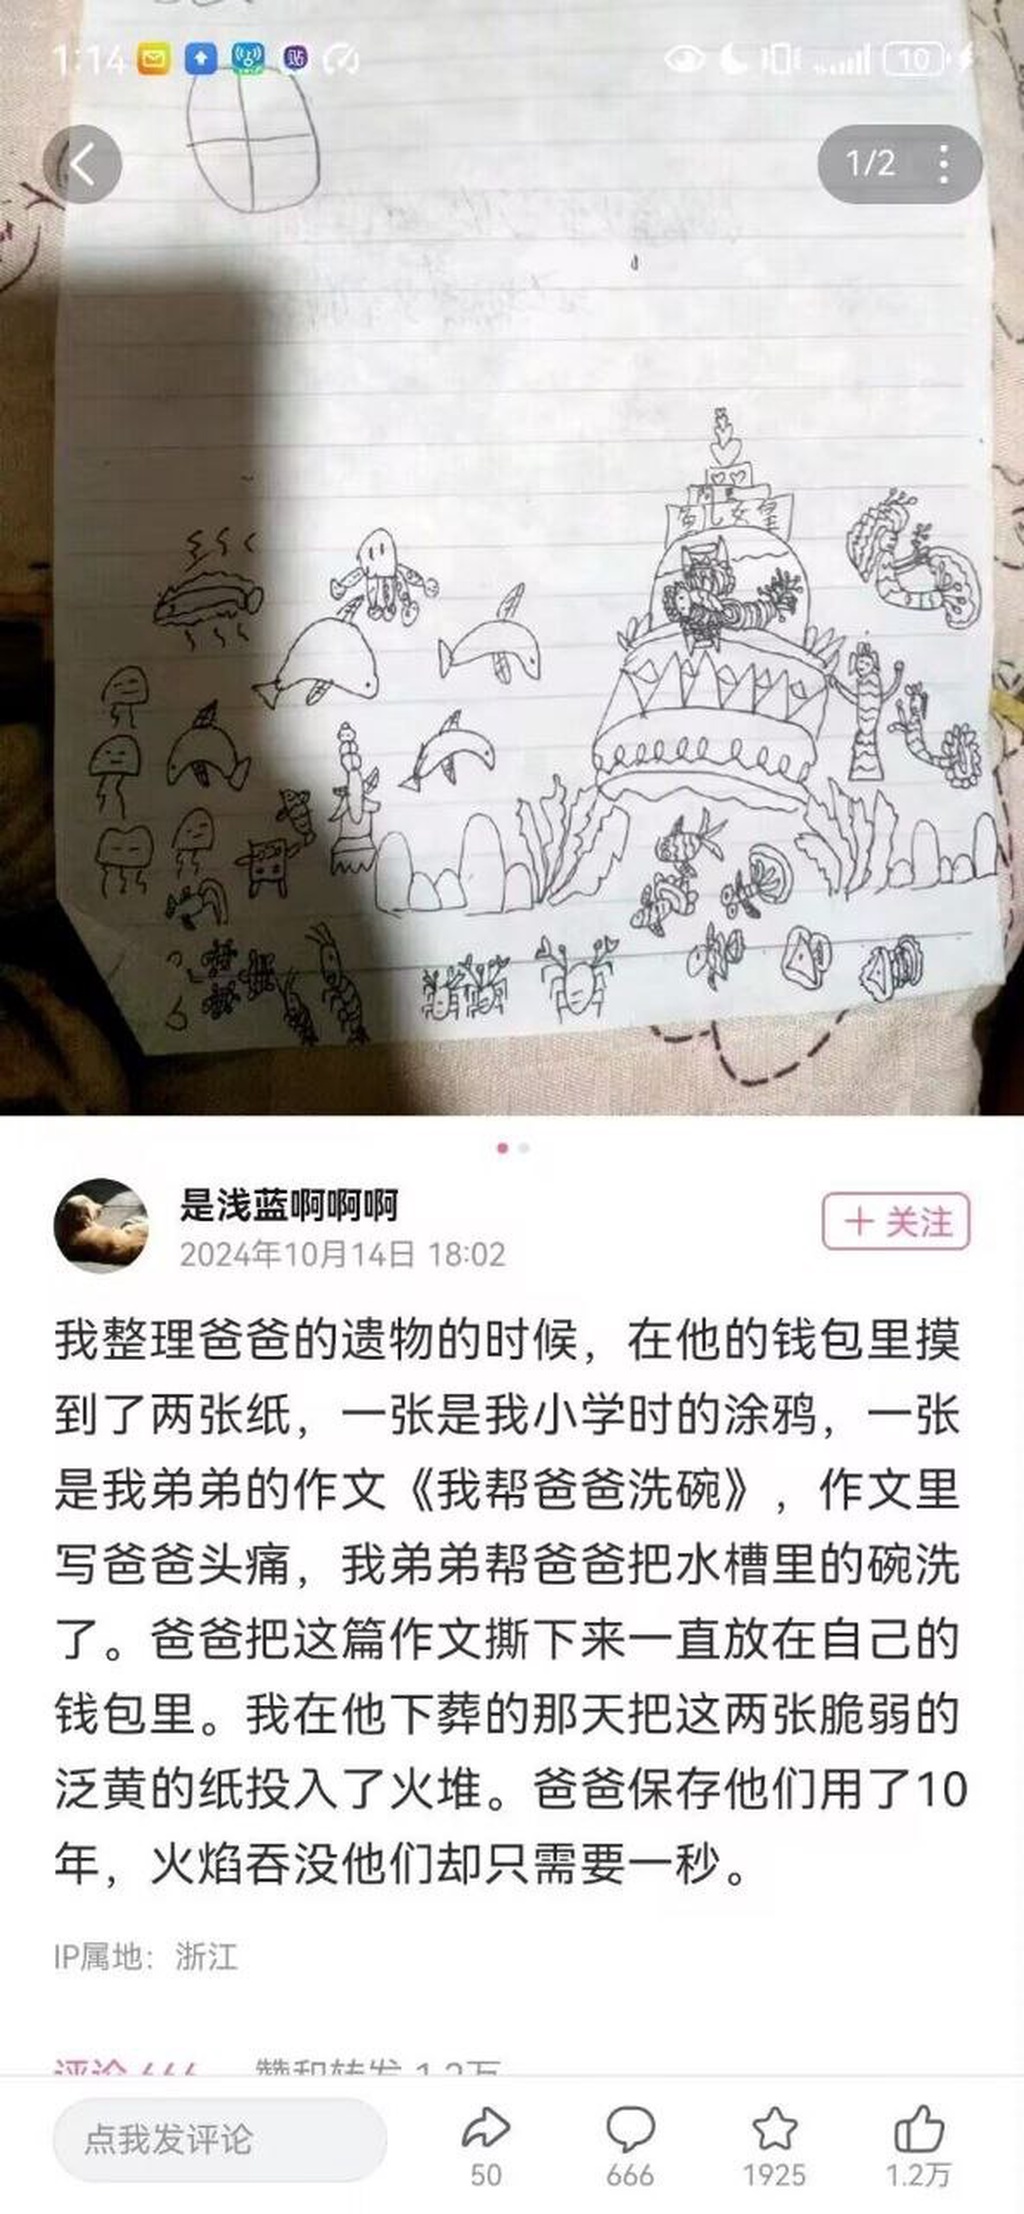 1:14
10
1/2
女皇
是浅蓝啊啊啊
+ 关注
2024年10月14日 18:02
我整理爸爸的遗物的时候，在他的钱包里摸
到了两张纸，一张是我小学时的涂鸦，一张
是我弟弟的作文《我帮爸爸洗碗》，作文里
写爸爸头痛，我弟弟帮爸爸把水槽里的碗洗
了。爸爸把这篇作文撕下来一直放在自己的
钱包里。我在他下葬的那天把这两张脆弱的
泛黄的纸投入了火堆。爸爸保存他们用了10
年，火焰吞没他们却只需要一秒。
IP属地：浙江
评论 666 赞和转发 1.2万
点我发评论
50
666
1925
1.2万